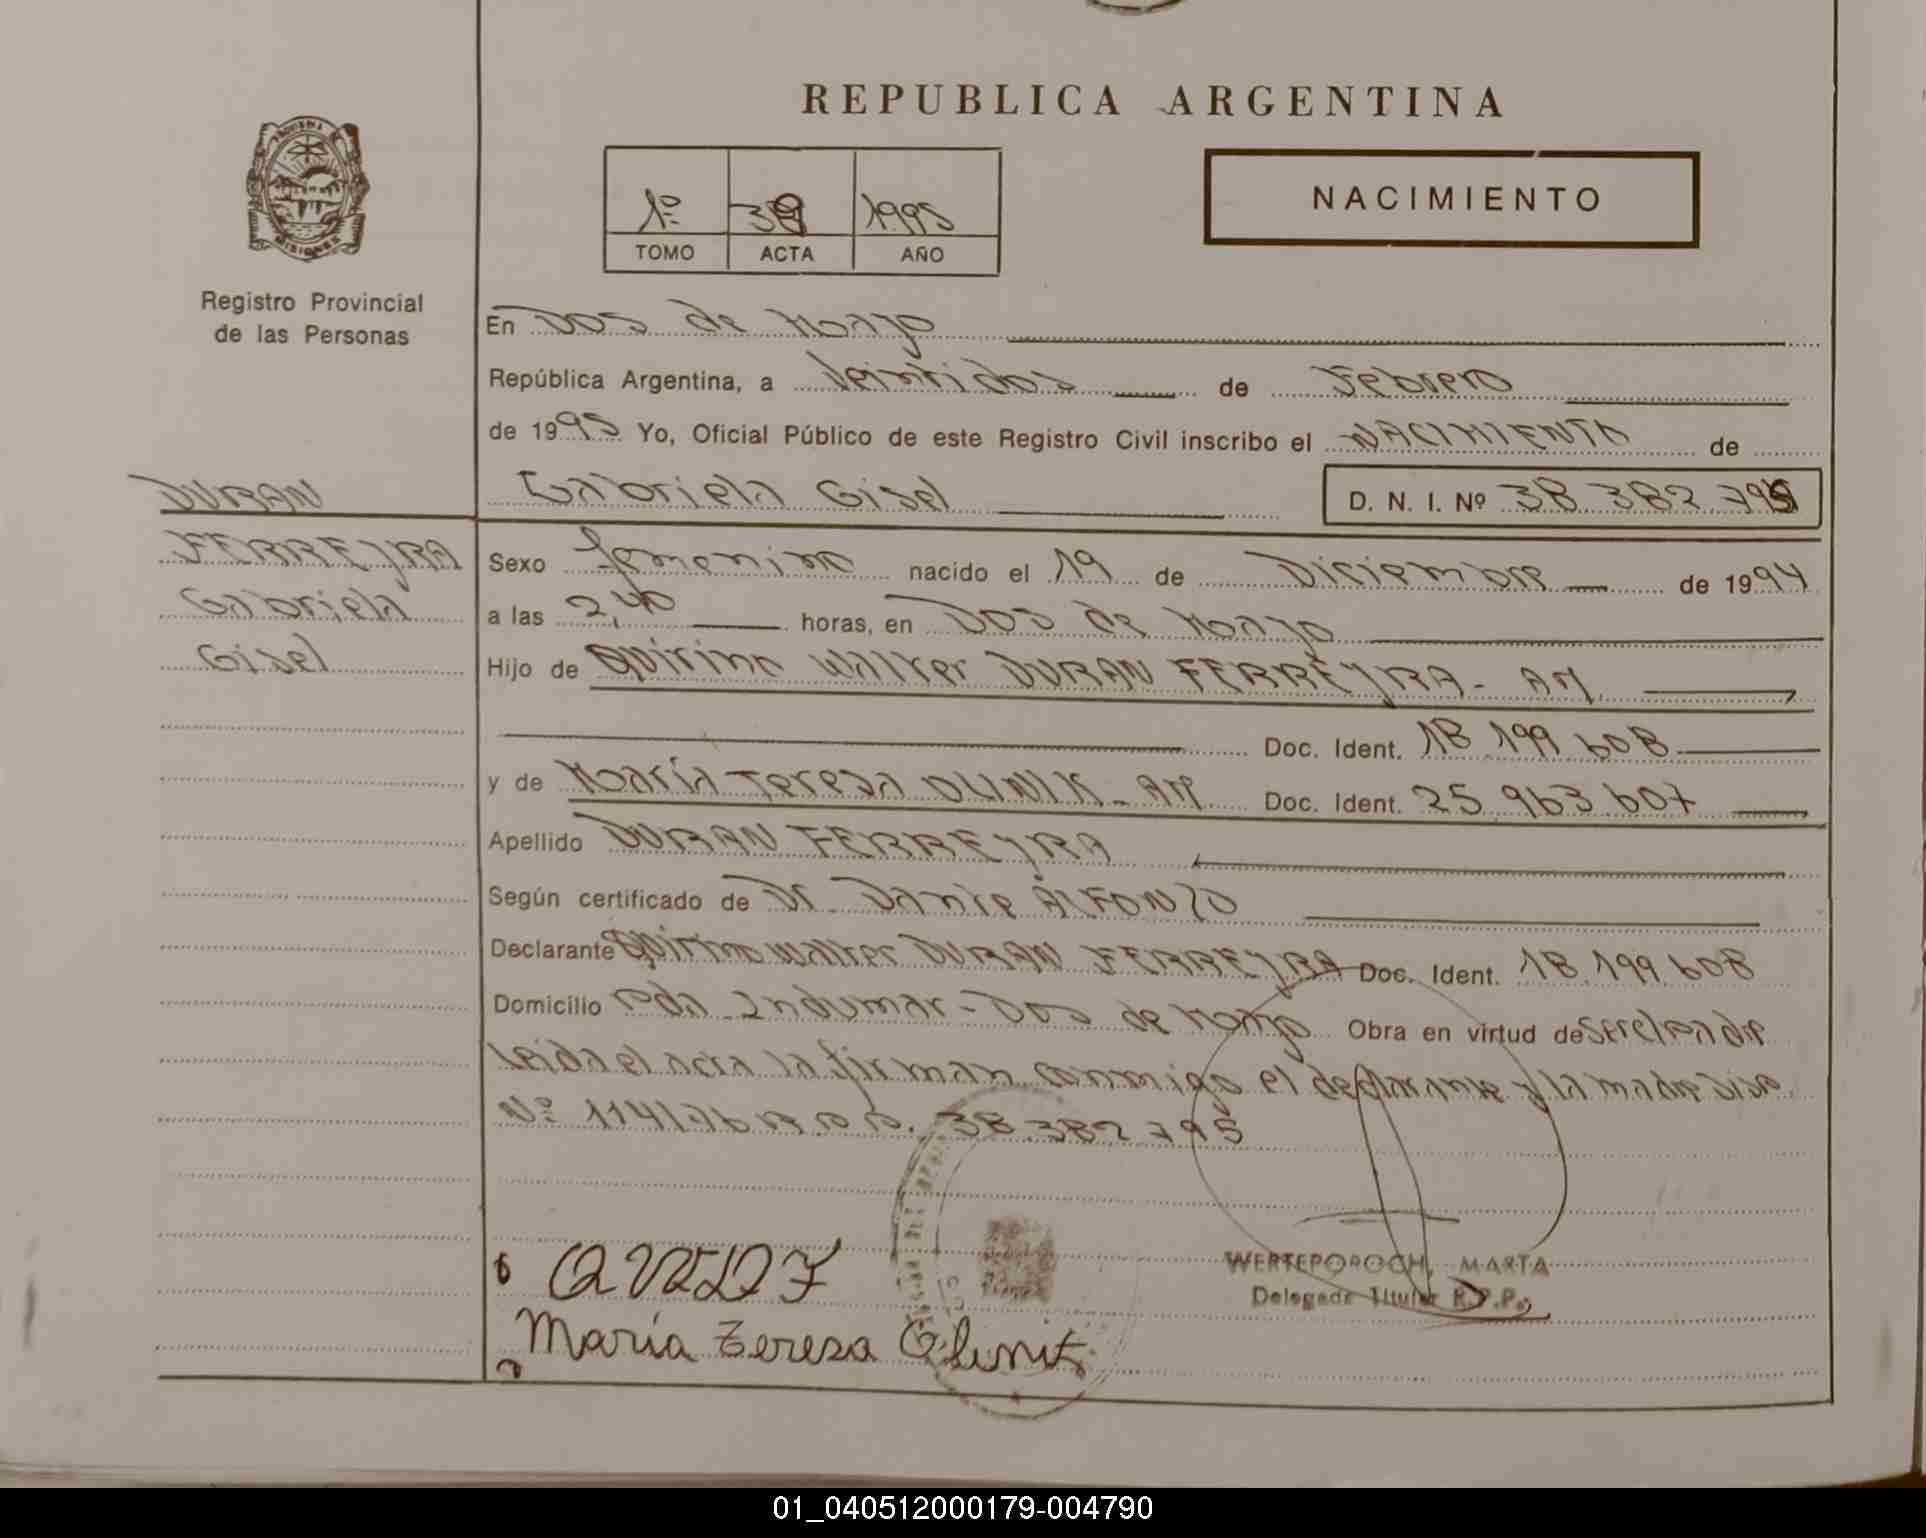 REPUBLICA ARGENTINA
MISIONES
Registro Provincial
de las Personas
1º 39 1995
TOMO ACTA AÑO
NACIMIENTO
En Dos de Mayo
República Argentina, a Veintidos de Febrero
de 1995 Yo, Oficial Público de este Registro Civil inscribo el NACIMIENTO de
Gabriela Gisel D. N. I. Nº 38 382 795
DURAN
FERREYRA
Gabriela
Gisel
Sexo femenino nacido el 19 de Diciembre de 1994
a las 2,40 horas, en Dos de Mayo
Hijo de Quirino Walter DURAN FERREYRA - AM
Doc. Ident. 18.199.608
y de María Teresa OLINIK - AM Doc. Ident. 25.963.607
Apellido DURAN FERREYRA
Según certificado de Dr. Dante ALFONZO
Declarante Quirino Walter DURAN FERREYRA Doc. Ident. 18.199.608
Domicilio Dos de Mayo Obra en virtud de ser el padre
leida el acta la firman conmigo el declarante y la madre
Nº 38.382.795
QWDF
María Teresa Olinik
WERTEPOROCH, MARTA
Delegada Titular R.P.P.
01_040512000179-004790